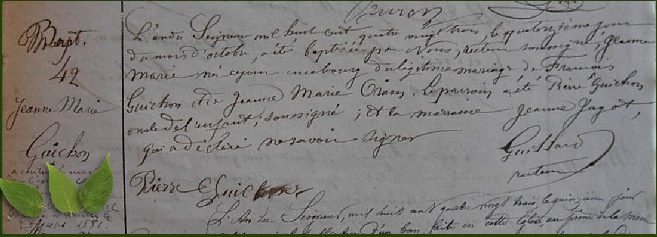 Bapt.
42
Jeanne Marie
Guichon
L'an du Seigneur mil huit cent quatre vingt trois, le quatorzième jour
du mois d'octobre, a été baptisée par Nous, recteur soussigné, Jeanne
Marie née ce jour au bourg du légitime mariage de François
Guichon et de Jeanne Marie Orain. Le parrain a été Pierre Guichon
oncle de l'enfant, soussigné; et la marraine Jeanne Jagot,
qui a déclaré ne savoir signer
Guillard
recteur
Pierre Guichon
L'An du Seigneur, mil huit cent quatre vingt trois, le quinzième jour